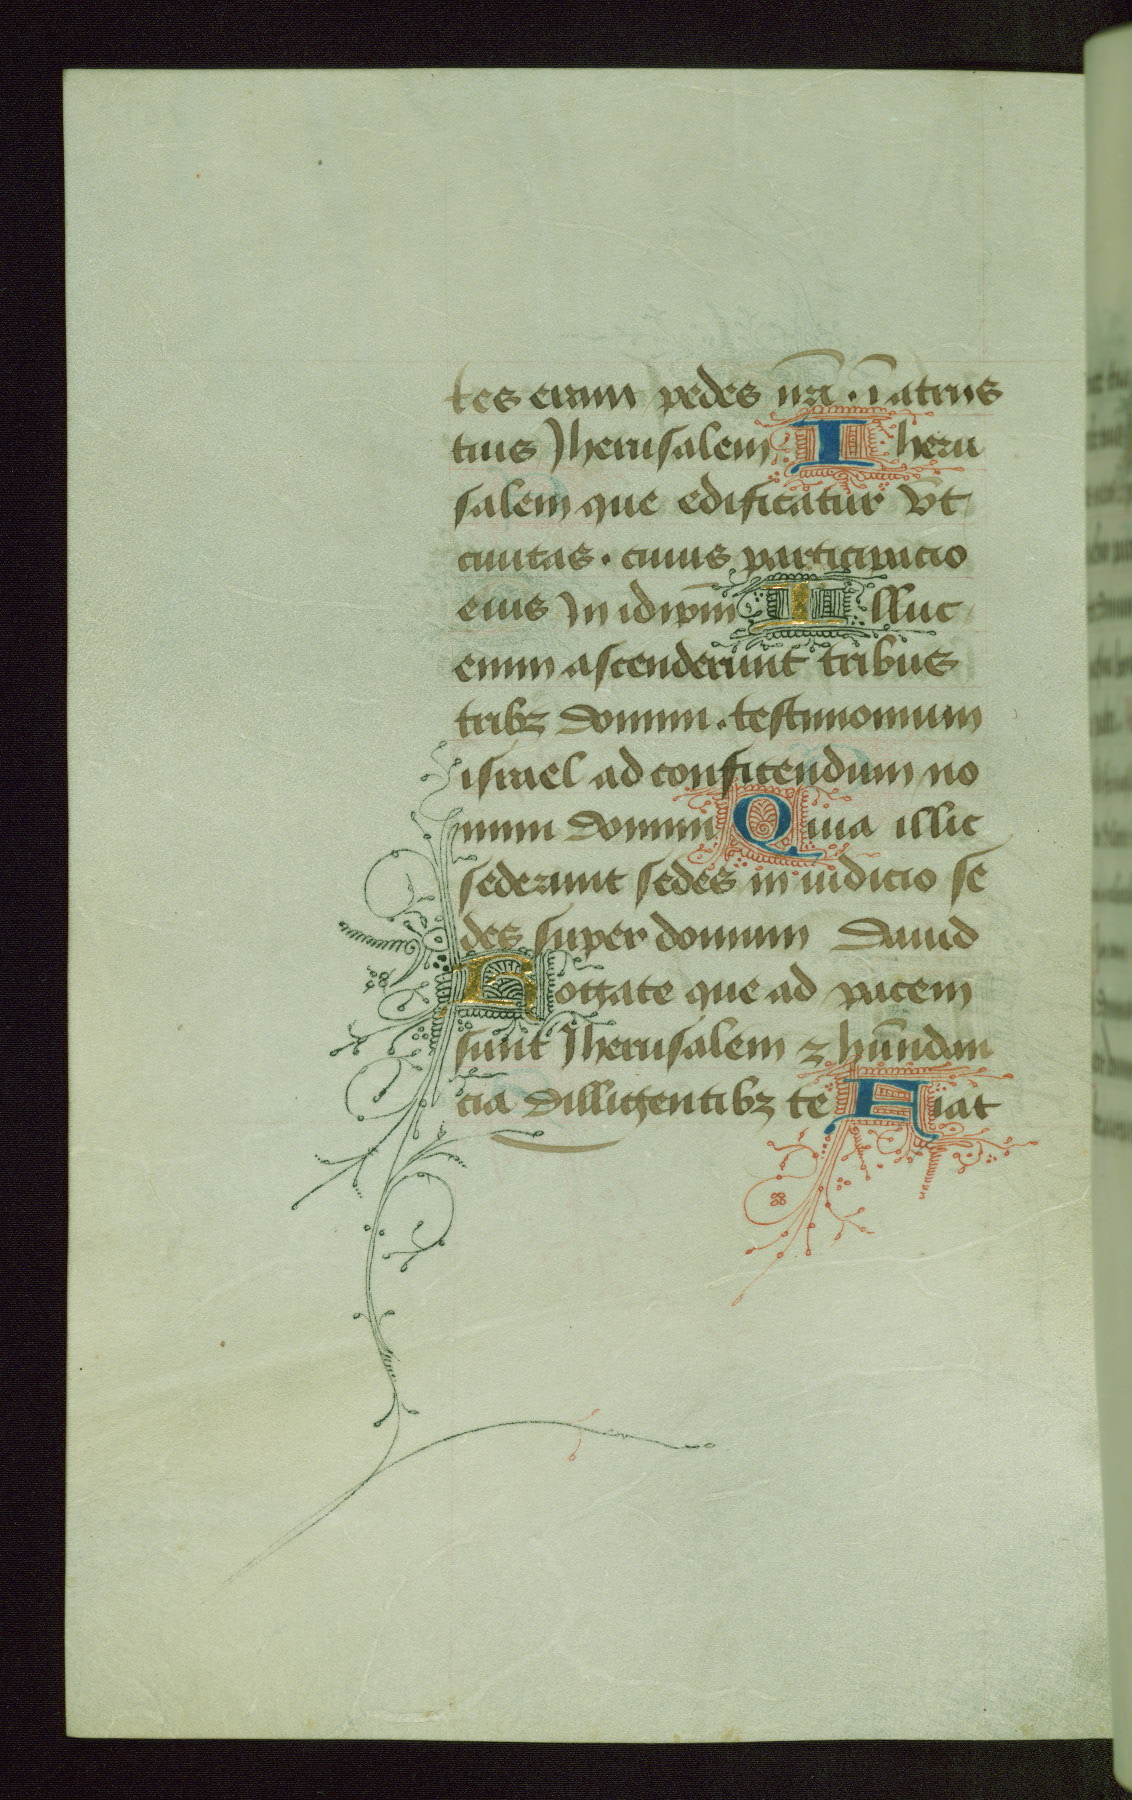 tes erant pedes nr̄i · īn atriis
tuis Jherusalem Iheru
salem que edificatur vt
ciuitas · cuius participacio
eius in idip̄m Illuc
enim ascenderunt tribus
tribꝫ domini · testimonium
israel ad confitendum no
mini domini Quia illic
sederunt sedes in iudicio se
des super domum Dauid
Rogate que ad pacem
sunt Jherusalem ⁊ habūndan
cia dilligentibꝫ te Fiat